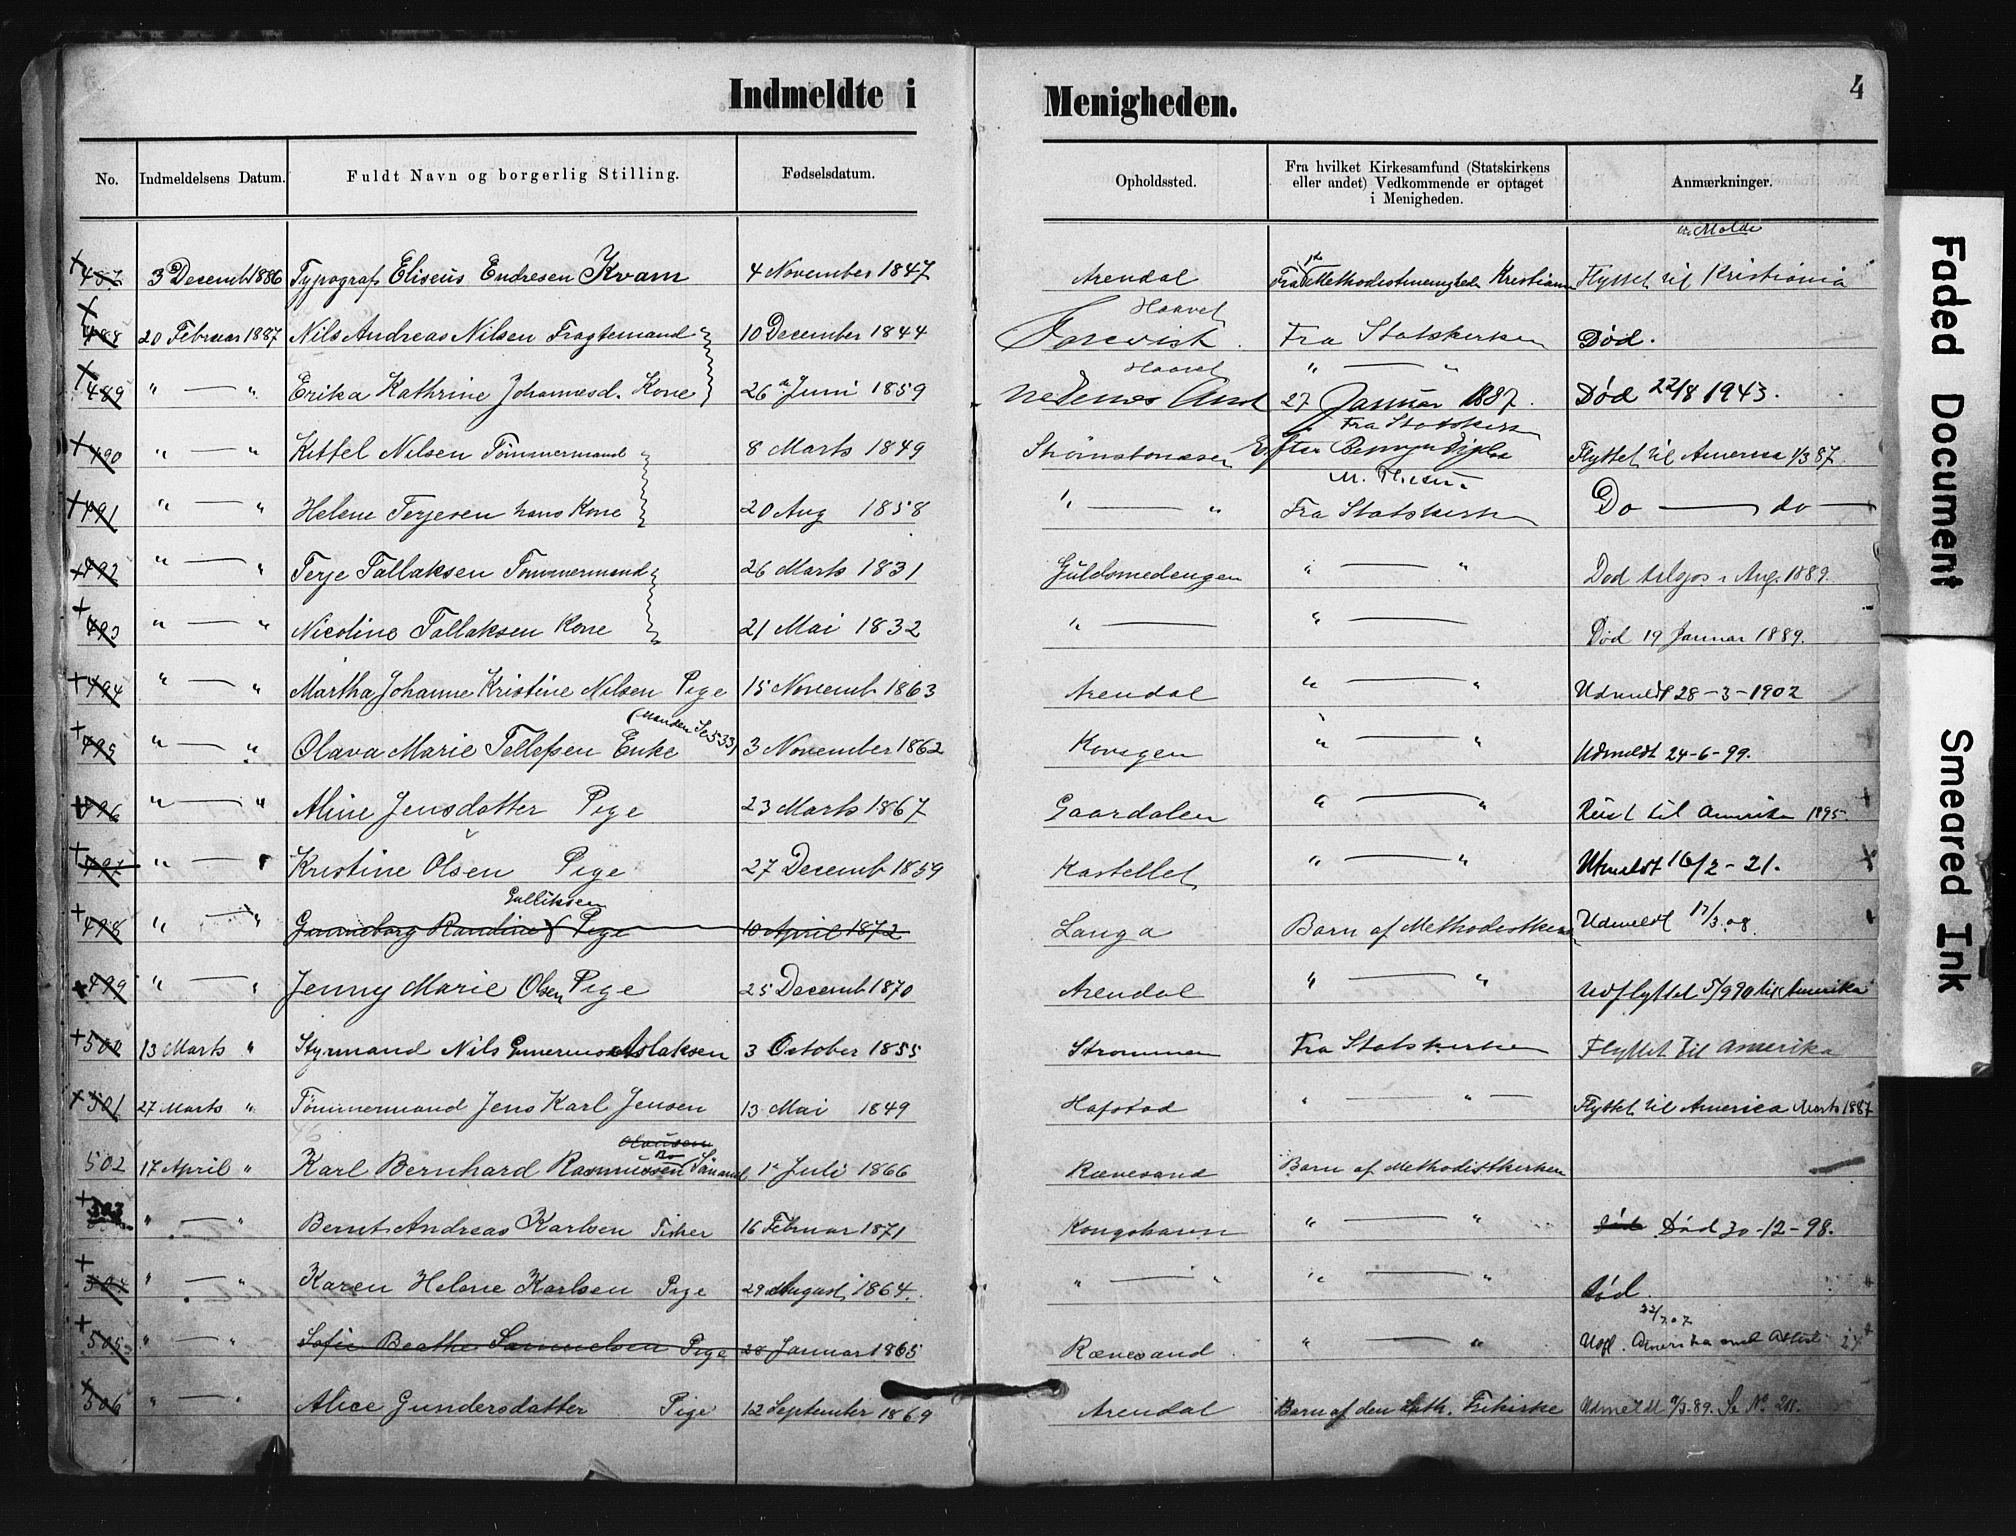 Indmeldte i Menigheden. 4
No. Indmeldelsens Datum. Fuldt Navn og borgerlig Stilling. Fødselsdatum. Opholdssted. Fra hvilket Kirkesamfund (Statskirkens eller andet) Vedkommende er optaget i Menigheden. Anmærkninger.
Molde
487 3 Decemb 1886 Typograf Eliseus Endresen Kvam 4 November 1847 Arendal Fra Methodistmenigheden Kristiania Flyttet til Kristiania
Haavet
488 20 Februar 1887 Nils Andreas Nilsen Fragtemand 10 December 1844 Fra Statskirken Død.
Haavet
489 " — " Erika Kathrine Johannesd. Kone 26 Juni 1859 Nedenes Amt " — " 27 Januar 1887. Død 22/8 1943.
490 " — " Kittel Nilsen Tömmermand 8 Marts 1849 Fra Statskirken Efter Flyttet til America 1/3 87.
491 " — " Helene Terjesen hans Kone 20 Aug 1858 " — " Fra Statskirken Do — do —
492 " — " Terje Tallaksen Tömmermand 26 Marts 1831 Guldsmedengen " — " Død tilsjøs i Aug. 1889.
493 " — " Nicoline Tallaksen Kone 21 Mai 1832 " — " — Død 19 Januar 1889.
494 " — " Martha Johanne Kristine Nilsen Pige 15 Novemb. 1863 Arendal " — " Udmeldt 28-3-1902
(Manden Se 533)
495 " — " Olava Marie Tellefsen Enke 3 November 1862 " — " Udmeldt 24-6-99.
496 " — " Aline Jensdatter Pige 23 Marts 1867 Gaardalen " — " Reist til Amerika 1895. +
497 " — " Kristine Olsen Pige 27 Decemb 1859 Kastellet " — " Utmeldt 16/2-21. X
Gulliksen
498 " — " Gunneborg Randine Pige 10 April 1872 Langø Barn af Methodistkirken Udmeldt 17/3.08.
499 " — " Jenny Marie Olsen Pige 25 Decemb 1870 Arendal " — " Udflyttet 5/9 90 til Amerika
500 13 Marts " Styrmand Nils Aslaksen 3 October 1855 Strømmen Fra Statskirken Flyttet til Amerika
501 27 Marts " Tömmermand Jens Karl Jensen 13 Mai 1849 Hafstad " — " — Flyttet til America Marts 1887
Olausen
502 17 April " Karl Bernhard Rasmussen Sömand 1 Juli 1866 Rævesand Barn af Methodistkirken
503 " — " Bernt Andreas Karlsen Fisker 16 Februar 1871 Kongshavn " — " Død Død 30-12-98.
504 " — " Karen Helene Karlsen Pige 29 August 1864. " — " " — " Død.
22/7 07
505 " — " Sofie Beathe Samuelsen Pige 28 Januar 1865 Rævesand " — " Udfl. Amerika med Attest
506 " — " Alice Gundersdatter Pige 12 September 1869 Arendal Barn af den Luth. Frikirke Udmeldt 9/3.89. Se No 211.
Faded Document
Smeared Ink